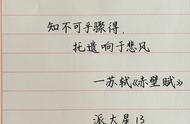 知不可乎骤得，
托遗响于悲风
一苏轼《赤壁赋》
派大星13